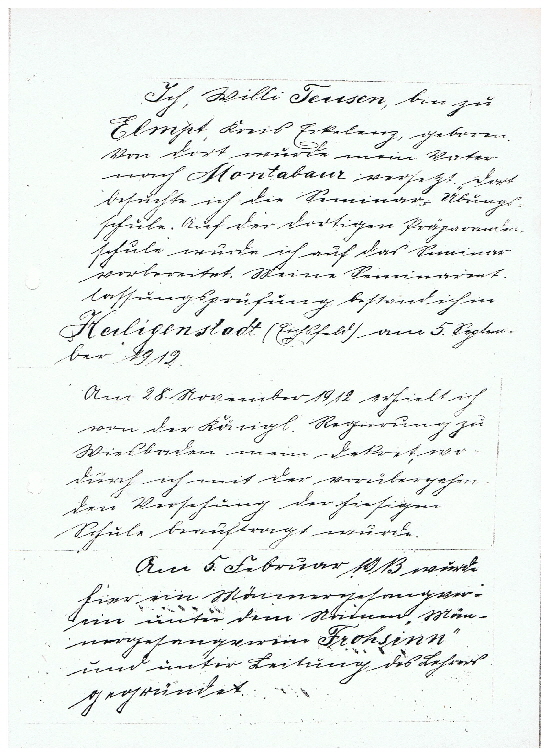 Ich, Willi Teusen, bin zu
Elmpt, Kreis Erkelenz, geboren.
Von dort wurde mein Vater
nach Montabaur versetzt, dort
besuchte ich die Seminar-Übungs-
schule. Auf der dortigen Präparanden-
schule wurde ich auf das Seminar
vorbereitet. Meine Seminarent-
lassungsprüfung bestand ich in
Heiligenstadt (Eichsfeld) am 5. Septem-
ber 1912.
Am 28. November 1912 erhielt ich
von der Königl. Regierung zu
Wiesbaden mein Dekret, wo-
durch ich mit der vorübergehen-
den Versehung der hiesigen
Schule beauftragt wurde.
Am 5. Februar 1913 wurde
hier ein Männergesangver-
ein unter dem Namen „Män-
nergesangverein Frohsinn"
und unter Leitung des Lehrers
gegründet.